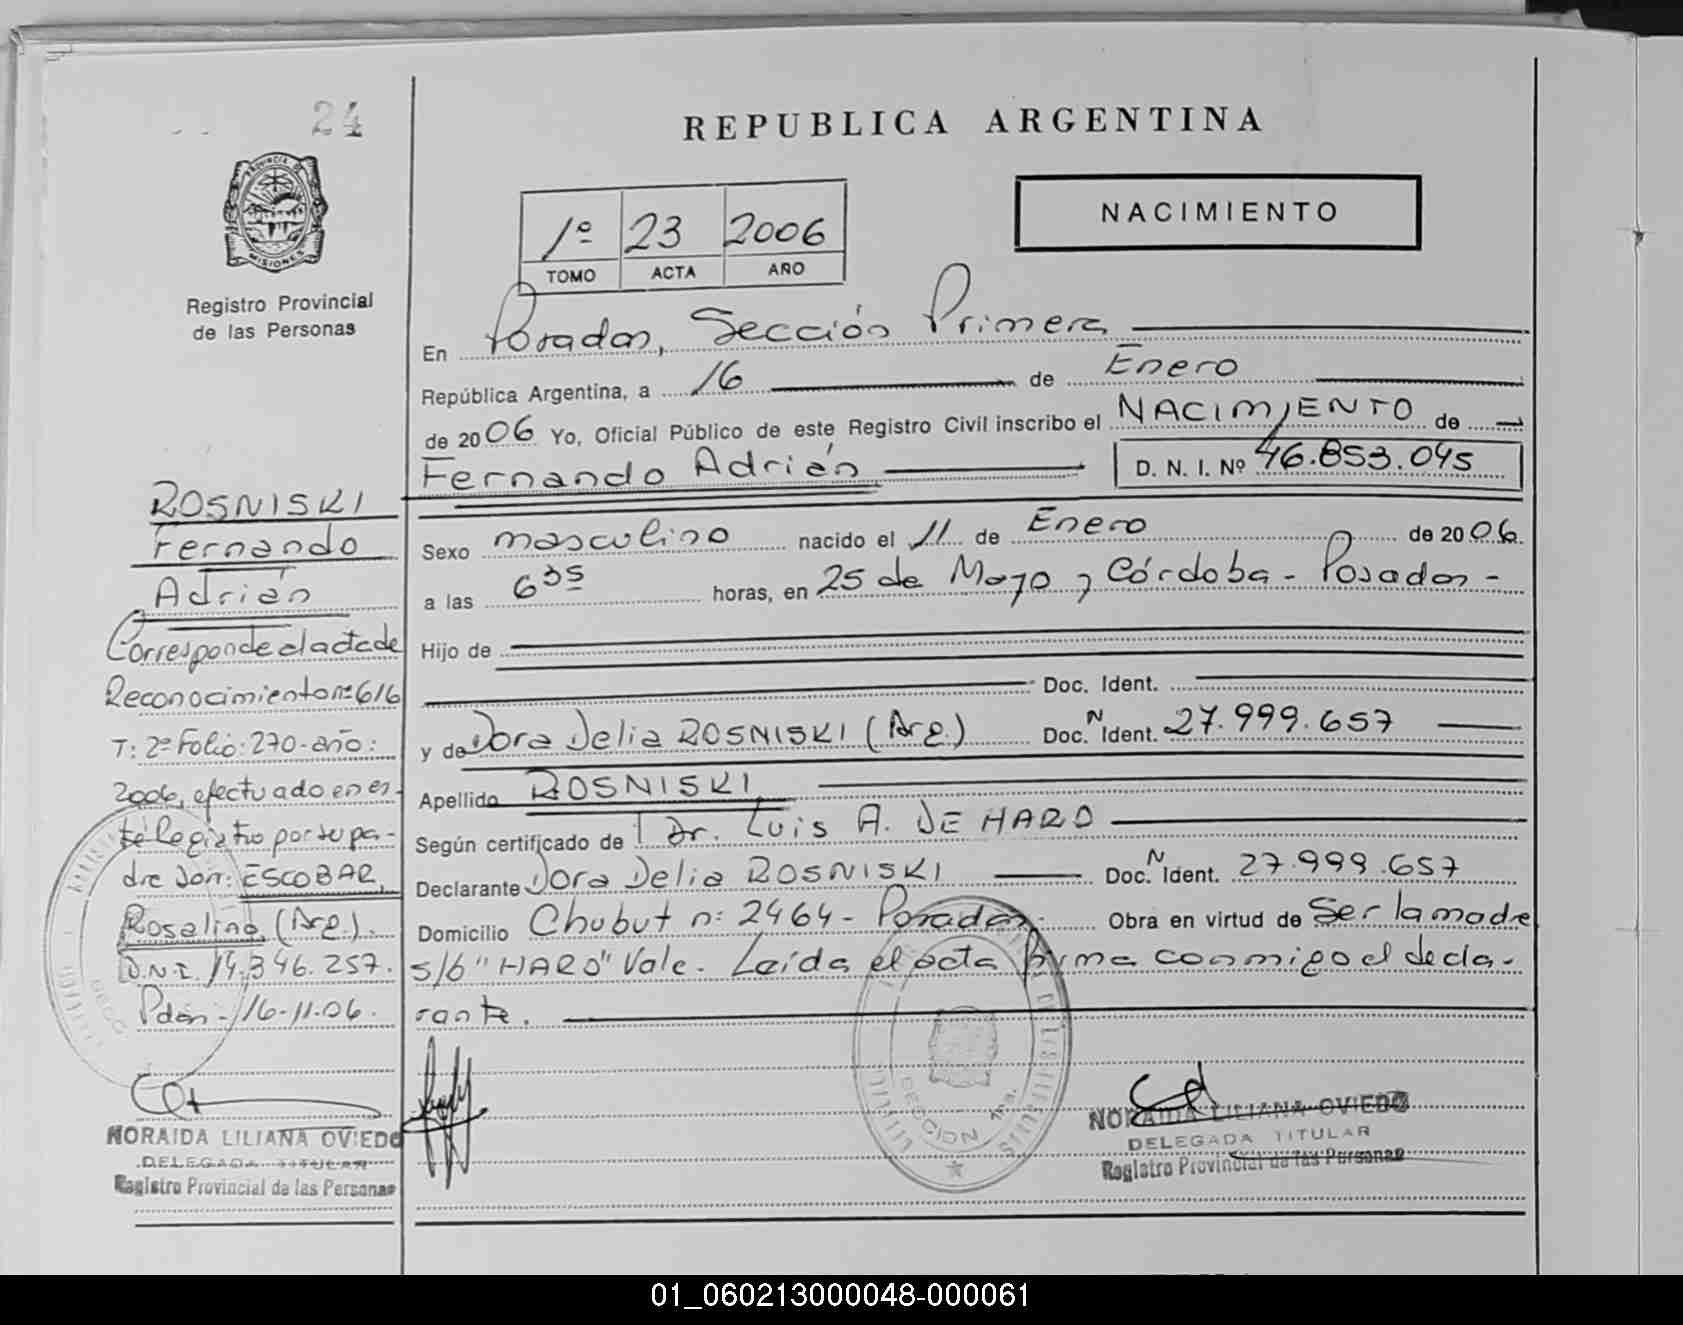 24
PROVINCIA DE
MISIONES
Registro Provincial
de las Personas
ROSNISKI
Fernando
Adrián
Corresponde al acta de
Reconocimiento nº 616
T: 2º Folio: 270 - año:
2006, efectuado en es-
te Registro por su pa-
dre Don: ESCOBAR,
Rosalino (Arg.).
D.N.I. 14.346.257.
Pdas - 16-11-06.
NORAIDA LILIANA OVIEDO
DELEGADA TITULAR
Registro Provincial de las Personas
REPUBLICA ARGENTINA
1º 23 2006
TOMO ACTA AÑO
NACIMIENTO
En Posadas, Sección Primera
República Argentina, a 16 de Enero
de 2006 Yo, Oficial Público de este Registro Civil inscribo el NACIMIENTO de
Fernando Adrián D. N. I. Nº 46.853.045
Sexo masculino nacido el 11 de Enero de 2006.
a las 6 35 horas, en 25 de Mayo y Córdoba - Posadas -
Hijo de
Doc. Ident.
y de Dora Delia ROSNISKI (Arg.) Doc. N Ident. 27.999.657
Apellido ROSNISKI
Según certificado de Dr. Luis A. DE HARO
Declarante Dora Delia ROSNISKI Doc. N Ident. 27.999.657
Domicilio Chubut nº 2464 - Posadas - Obra en virtud de Ser la madre
s/b "HARO" Vale. Leída el acta firma conmigo el decla-
rante.
SECCION 1ra.
NORAIDA LILIANA OVIEDO
DELEGADA TITULAR
Registro Provincial de las Personas
01_060213000048-000061